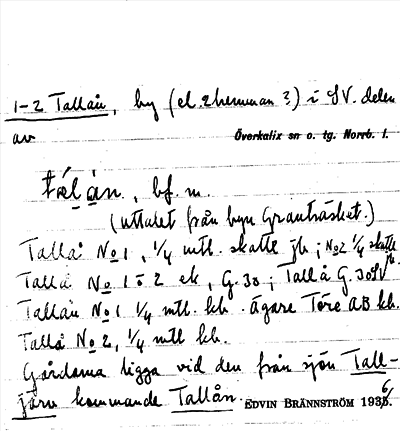 1-2 Tallån, by (el. 2 hemman?) i SV. delen
av Överkalix sn o. tg. Norrb. l.
tǽlån., bf. m.
(uttalet från byn Granträsket.)
Tallå No 1, 1/4 mtl. skatte jb; No 2 1/4 skatte
Tallå No 1 o 2 ek, G. 30; Tallå G. 30 SV jb
Tallån No 1 1/4 mtl. kb. ägare Töre AB kb.
Tallå No 2, 1/4 mtl kb.
Gårdarna ligga vid den från sjön Tall-
järv kommande Tallån. EDVIN BRÄNNSTRÖM 1936